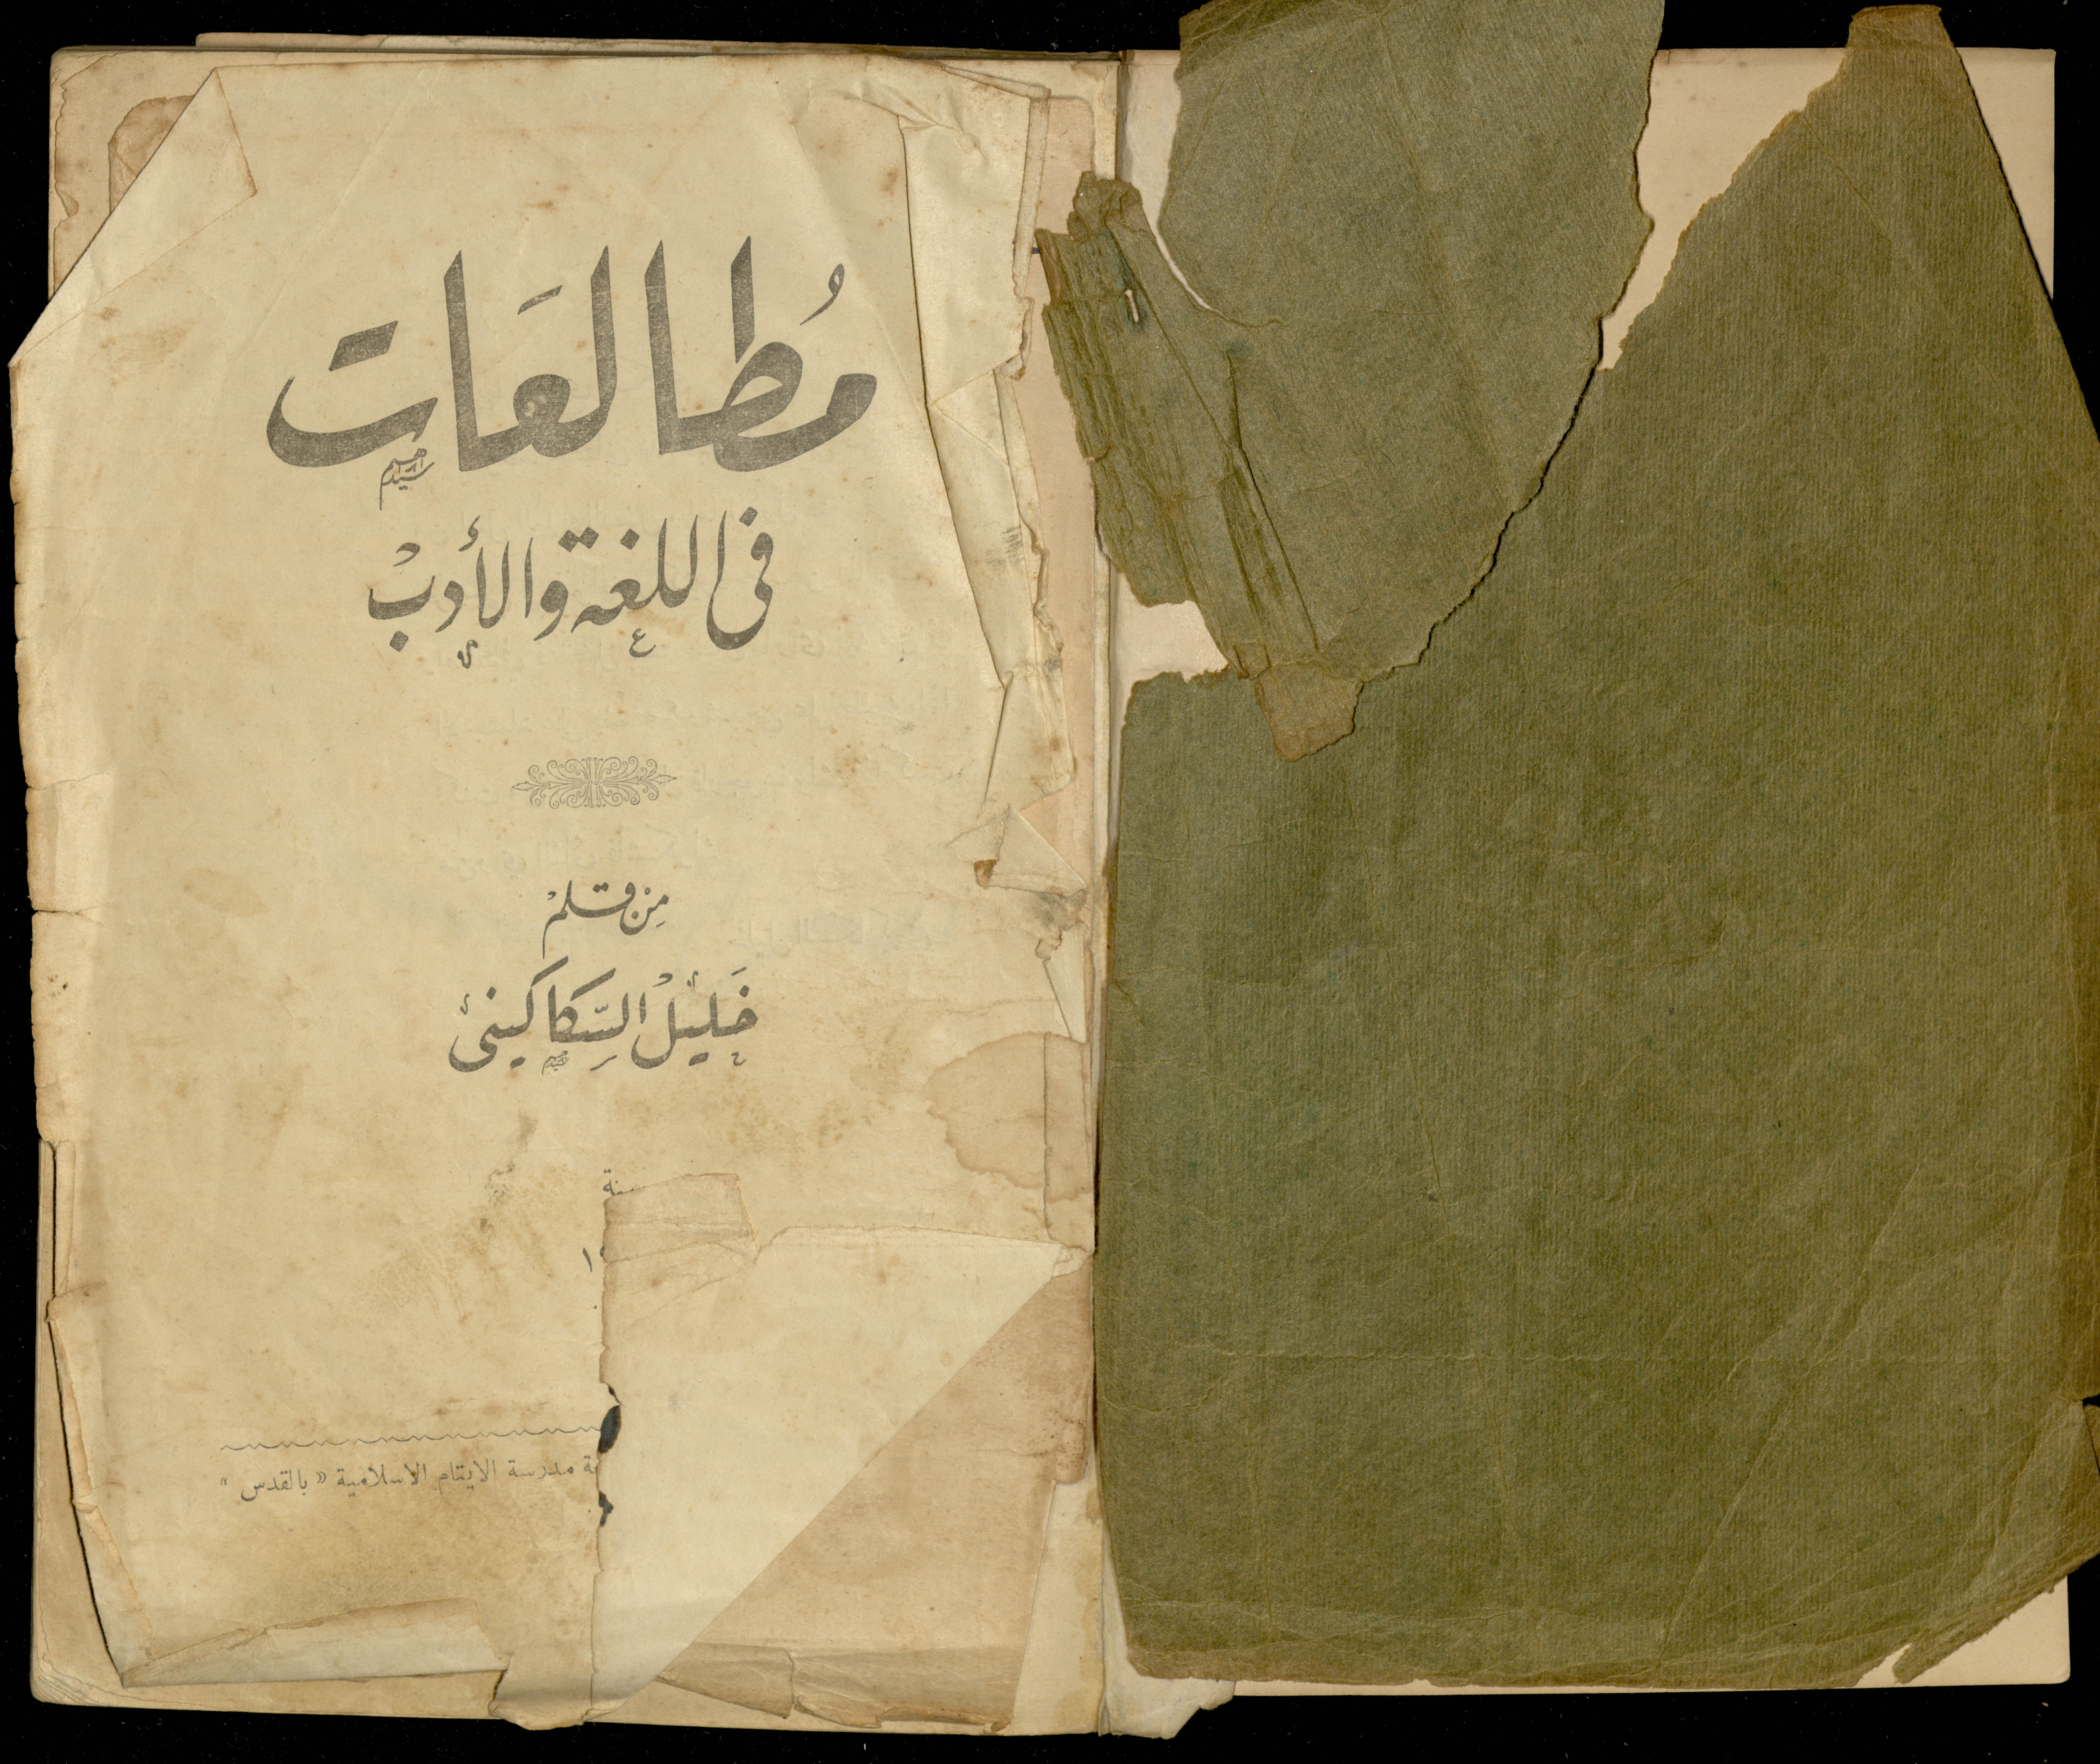 مُطالعَات
في اللغة والأدبْ
مِنْ قلمْ
خَليْلْ السِّكاكيني
سنة
مدرسة الايتام الاسلامية « بالقدس »